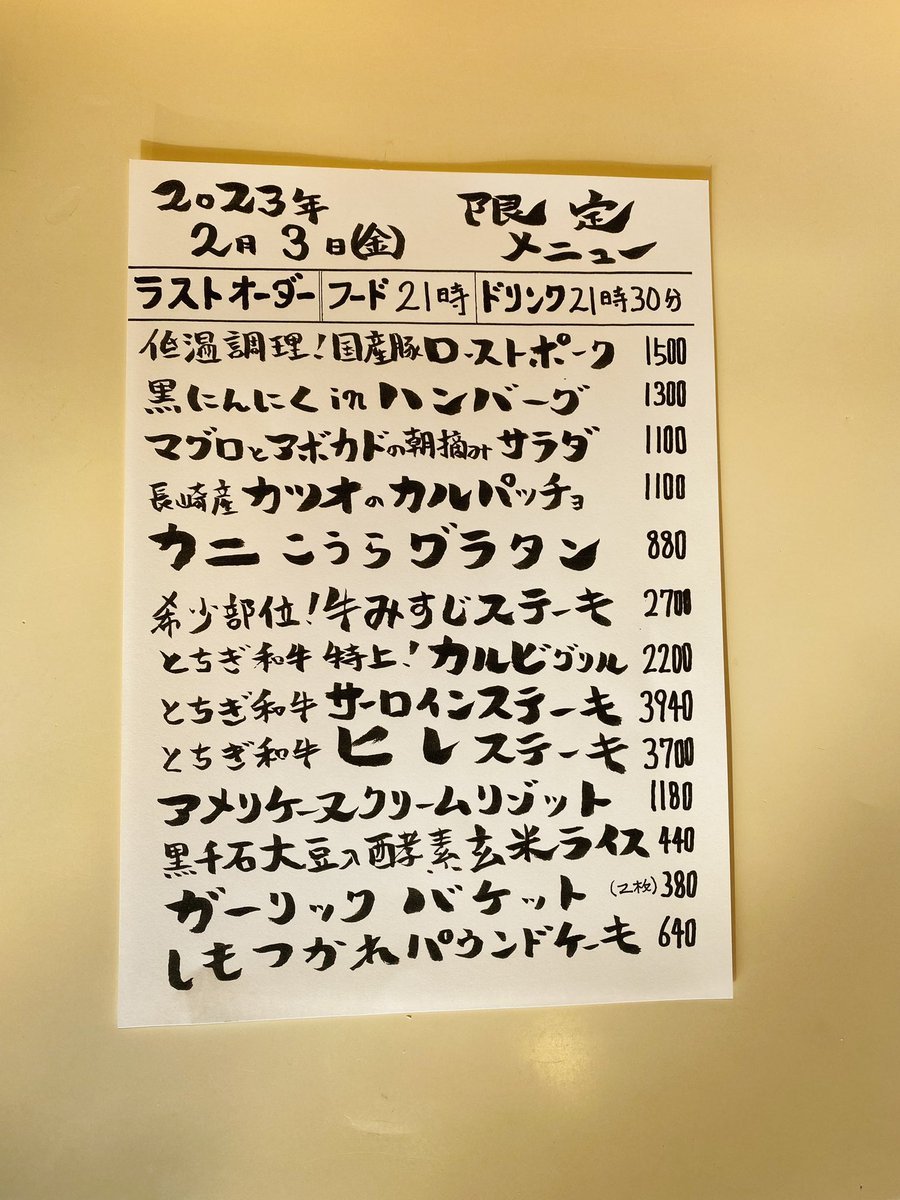 2023年 限定
2月3日(金) メニュー
ラストオーダー フード21時 ドリンク21時30分
低温調理!国産豚ローストポーク 1500
黒にんにくinハンバーグ 1300
マグロとアボカドの朝摘みサラダ 1100
長崎産カツオのカルパッチョ 1100
カニこうらグラタン 880
希少部位!牛みすじステーキ 2700
とちぎ和牛特上!カルビグリル 2200
とちぎ和牛サーロインステーキ 3940
とちぎ和牛ヒレステーキ 3700
アメリケーヌクリームリゾット 1180
黒千石大豆入酵素玄米ライス 440
ガーリックバケット(2枚) 380
しもつかれパウンドケーキ 640